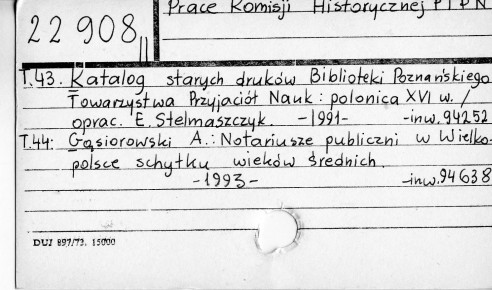 Prace Komisji Historycznej PTPN
22 908 II
T.43. Katalog starych druków Biblioteki Poznańskiego
Towarzystwa Przyjaciół Nauk: polonica XVI w. /
oprac. E. Stelmaszczyk. -1991- -inw. 94252
T.44: Gąsiorowski A.: Notariusze publiczni w Wielko-
polsce schyłku wieków średnich.
-1993- -inw. 94638
DUJ 897/73. 15000